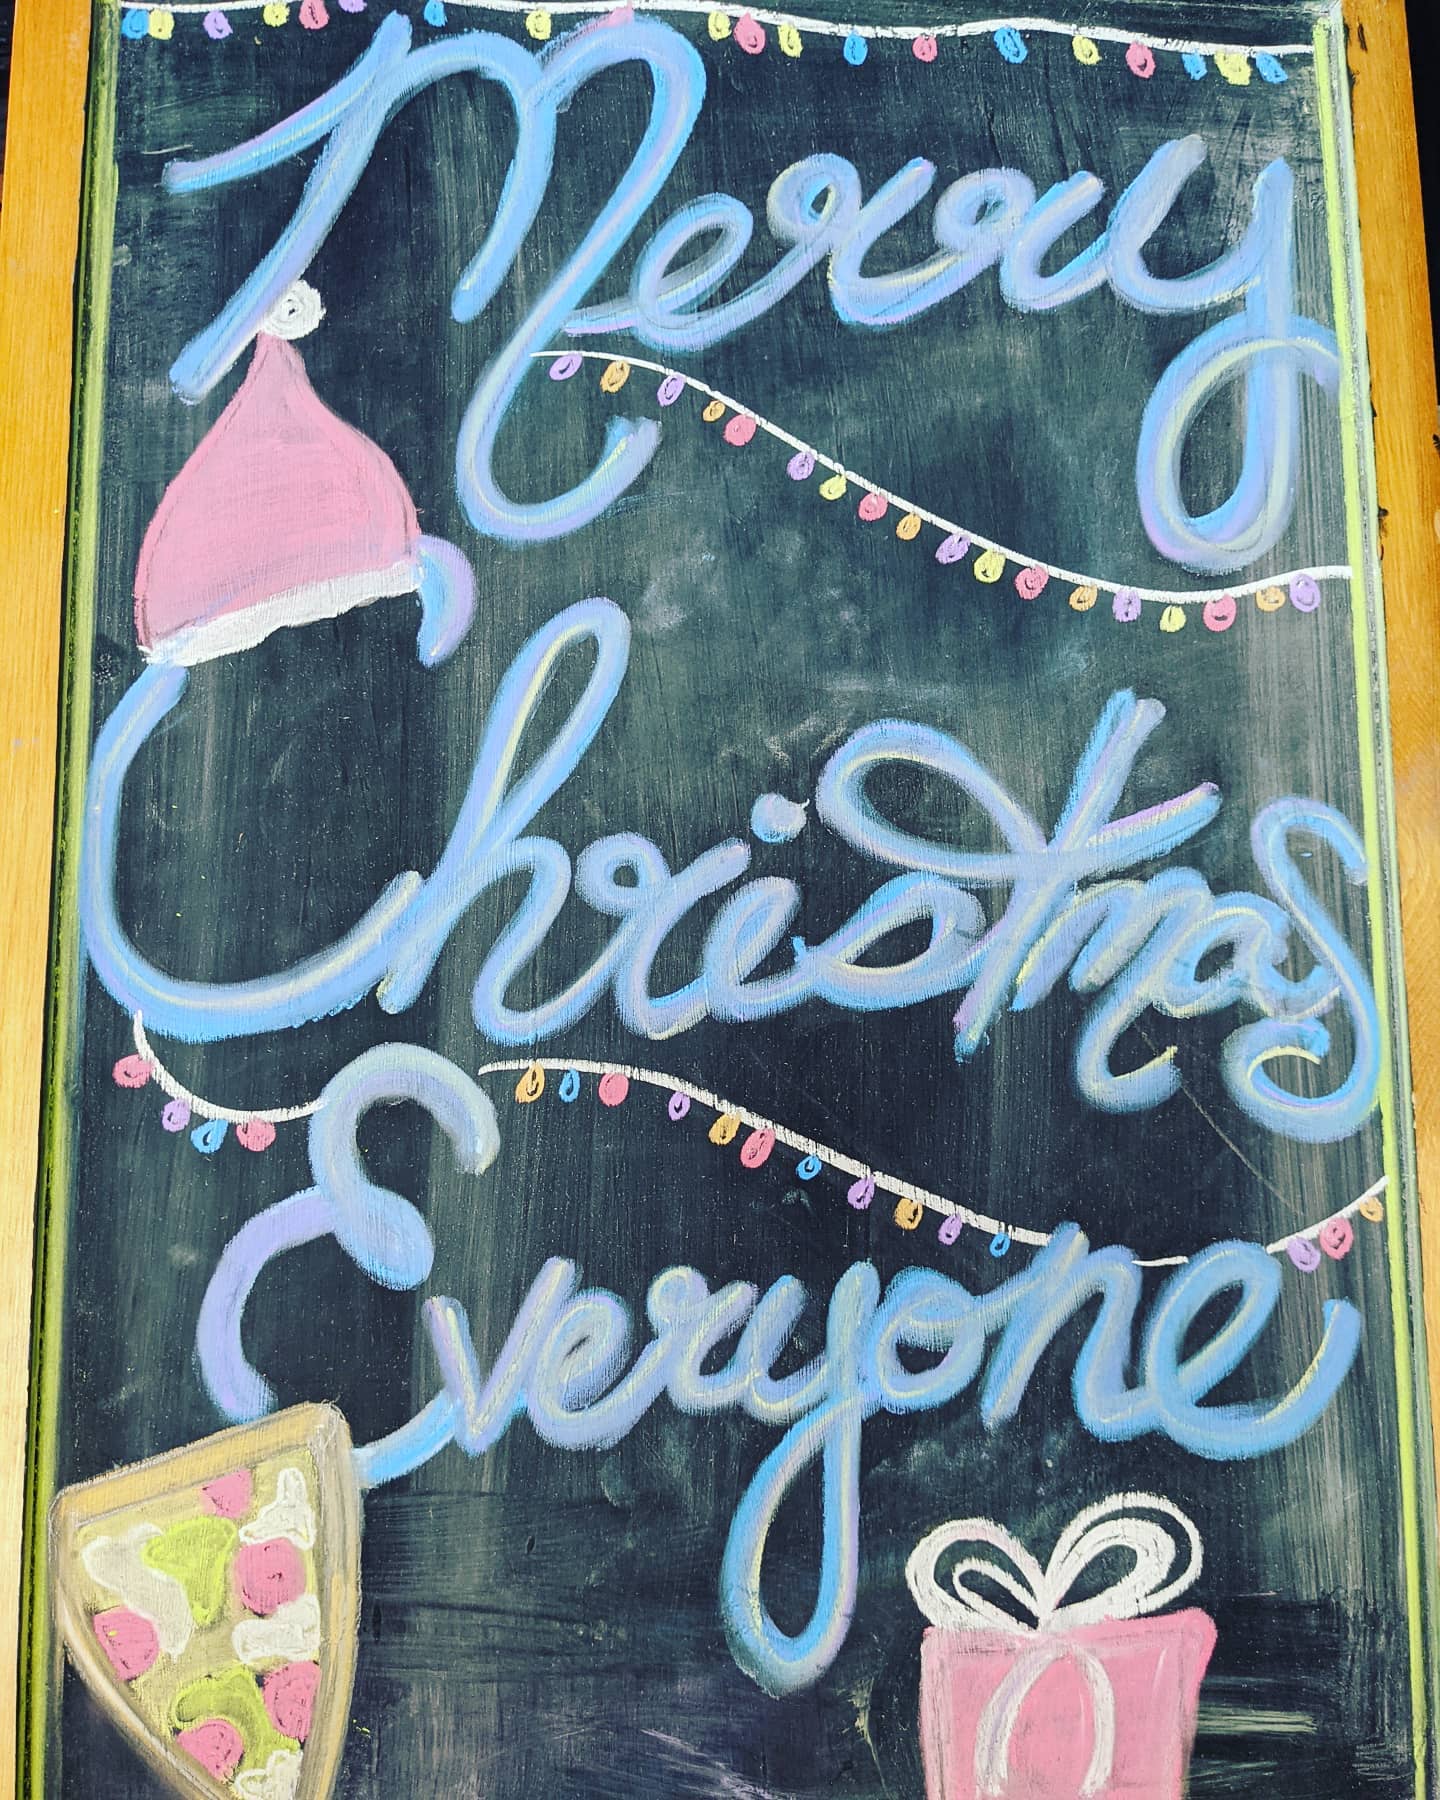 Merry
Christmas
Everyone